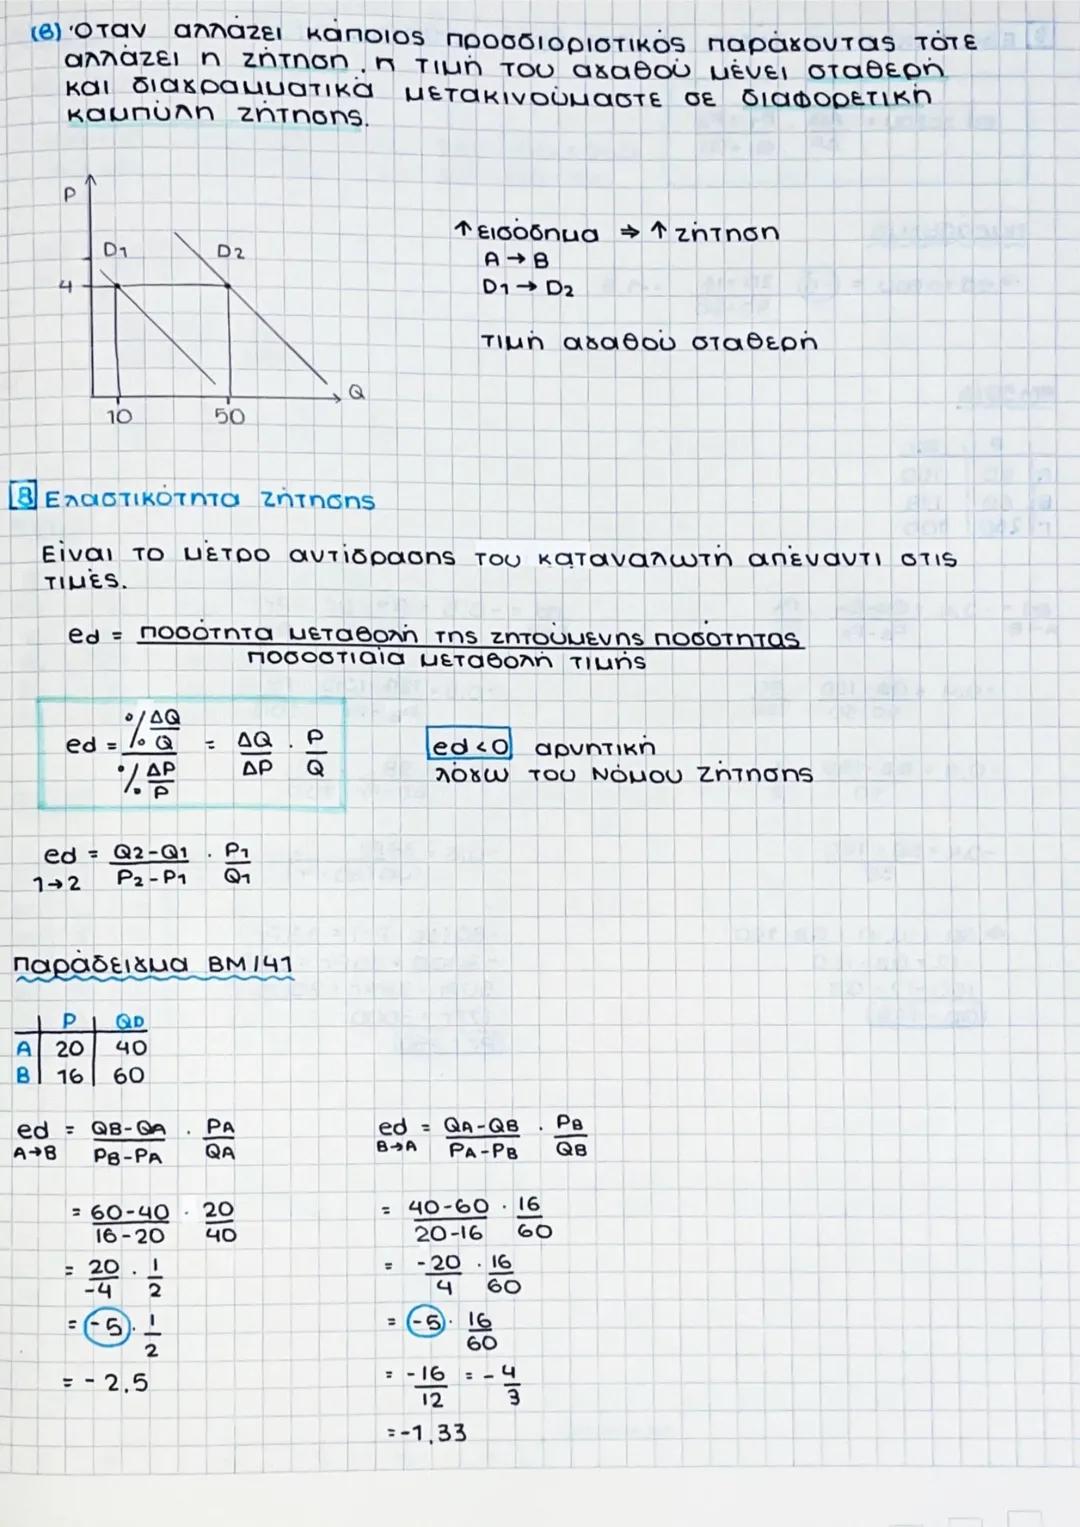 (β) Όταν αλλάζει κάποιος προσδιοριστικός παράγοντας τότε
αλλάζει η ζήτηση. η τιμή του αγαθού μένει σταθερή
και διαγραμματικά μετακινούμαστε σε διαφορετική
καμπύλη ζήτησης.
P
D1 D2
4
10 50 Q
↑ εισόδημα ⇒ ↑ ζήτηση
A → B
D1 → D2
τιμή αγαθού σταθερή
8 Ελαστικότητα ζήτησης
Είναι το μέτρο αντίδρασης του καταναλωτή απέναντι στις
τιμές.
ed = ποσότητα μεταβολή της ζητούμενης ποσότητας
ποσοστιαία μεταβολή τιμής
ed = % ΔQ/Q / % ΔP/P = ΔQ/ΔP . P/Q
ed<0 αρνητική
λόγω του Νόμου Ζήτησης
ed = Q2-Q1 . P1
1→2 P2-P1 Q1
παράδειγμα ΒΜ/41
P QD
A 20 40
B 16 60
ed = QB-QA . PA
A→B PB-PA QA
= 60-40 . 20
16-20 40
= 20 . 1
-4 2
= -5 . 1
2
= -2,5
ed = QA-QB . PB
B→A PA-PB QB
= 40-60 . 16
20-16 60
= -20 . 16
4 60
= -5 . 16
60
= -16 = - 4
12 3
= -1,33